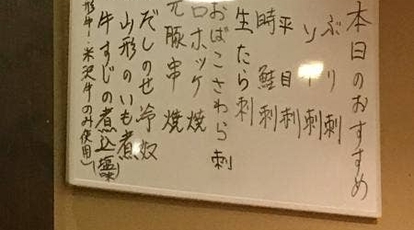 本日のおすすめ
ぶり刺
ソイ刺
平目刺
時鮭刺
生たら刺
おばこさわら刺
ロホッケ焼
元豚串焼
だしのせ冷奴
山形のいも煮
牛すじの煮込
牛・米沢牛のみ使用)